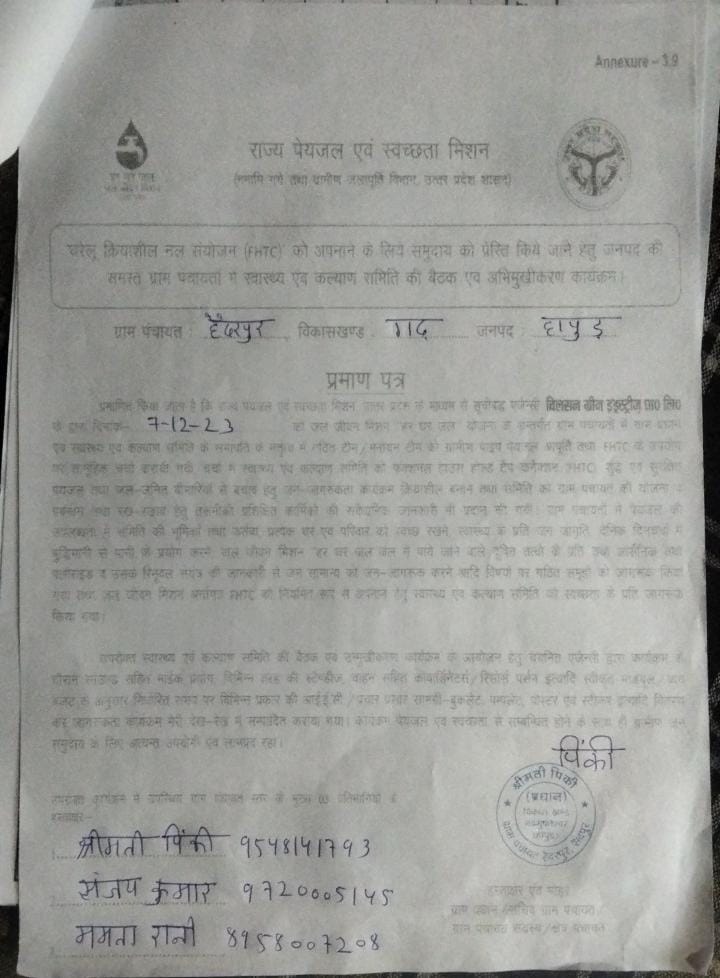 Annexure – 3.9
राज्य पेयजल एवं स्वच्छता मिशन
(नमामि गंगे तथा ग्रामीण जलापूर्ति विभाग, उत्तर प्रदेश शासन)
'घरेलू क्रियाशील नल संयोजन (FHTC)' को अपनाने के लिये समुदाय को प्रेरित किये जाने हेतु जनपद की
समस्त ग्राम पंचायतों में स्वास्थ्य एंव कल्याण समिति की बैठक एवं अभिमुखीकरण कार्यक्रम।
ग्राम पंचायत : हैदरपुर विकासखण्ड : गढ़ जनपद : हापुड़
प्रमाण पत्र
प्रमाणित किया जाता है कि राज्य पेयजल एवं स्वच्छता मिशन, उत्तर प्रदेश के माध्यम से सूचीबद्ध एजेन्सी विलसन ग्रीन इंडस्ट्रीज प्रा० लि०
के द्वारा दिनांक– 7-12-23 को जल जीवन मिशन "हर घर जल" योजना के अन्तर्गत ग्राम पंचायतों में ग्राम प्रधान
एवं स्वास्थ्य एवं कल्याण समिति के सभापति के समूह में गठित टीम/ टीम को ग्रामीण पाइप पेयजल आपूर्ति तथा FHTC के उपयोग
पर सामूहिक चर्चा करायी गयी। चर्चा में स्वास्थ्य एंव कल्याण समिति को फंक्शनल हाउस होल्ड टैप कनेक्शन (FHTC) शुद्ध एवं सुरक्षित
पेयजल तथा जल-जनित बीमारियों से बचाव हेतु जन-जागरूकता कार्यक्रम क्रियाशील बनाने तथा समिति को ग्राम पंचायत की योजना व
प्रबन्धन तथा रख-रखाव हेतु तकनीकी प्रशिक्षित कार्मिकों की सांकेतनिक जानकारी भी प्रदान की गयी। ग्राम पंचायतों में पेयजल की
उपलब्धता में समिति की भूमिका तथा कर्तव्य, प्रत्येक घर एवं परिवार को स्वच्छ रखने, स्वास्थ्य के प्रति जन जागृति, दैनिक दिनचर्या में
बुद्धिमानी से पानी के प्रयोग करने, जल जीवन मिशन "हर घर जल" जल में पाये जाने वाले दूषित तत्वों के प्रति तथा आर्सेनिक तथा
फ्लोराइड व उसके रिमूवल संयंत्र की जानकारी से जन सामान्य को जन-जागरूक करने आदि विषयों पर गठित समूहों को जागरूक किया
गया तथा जल जीवन मिशन अन्तर्गत FHTC को नियमित रूप से अपनाने हेतु स्वास्थ्य एंव कल्याण समिति को स्वच्छता के प्रति जागरूक
किया गया।
उपरोक्त स्वास्थ्य एवं कल्याण समिति की बैठक एवं उन्मुखीकरण कार्यक्रम के आयोजन हेतु चयनित एजेन्सी द्वारा कार्यक्रम के
दौरान साउण्ड सहित माईक प्रयोग, विभिन्न तरह की स्टैण्डीज, वाहन सहित कोआर्डिनेटर्स/रिसोर्स पर्सन इत्यादि स्वीकृत मॉड्यूल/व्यय
बजट के अनुसार निर्धारित समय पर विभिन्न प्रकार की आई.ई.सी./प्रचार प्रसार सामग्री-बुकलेट, पम्पलेट, पोस्टर एवं स्टीकर इत्यादि वितरण
कर जागरूकता कार्यक्रम मेरी देख-रेख में सम्पादित कराया गया। कार्यक्रम पेयजल एवं स्वच्छता से सम्बन्धित होने के साथ ही ग्रामीण जन
समुदाय के लिए अत्यन्त उपयोगी एवं लाभप्रद रहा।
पिंकी
श्रीमती पिंकी
(प्रधान)
विकास खण्ड
गढ़मुक्तेश्वर
(हापुड़)
ग्राम पंचायत हैदरपुर
उपरोक्त कार्यक्रम में उपस्थित ग्राम पंचायत स्तर के मुख्य 03 प्रतिभागियों के
हस्ताक्षर–
1. श्रीमती पिंकी 9548141793
2. संजय कुमार 9720005145
3. ममता रानी 8958007208
हस्ताक्षर एवं मोहर
ग्राम प्रधान/सचिव ग्राम पंचायत/
ग्राम पंचायत सदस्य/क्षेत्र पंचायत